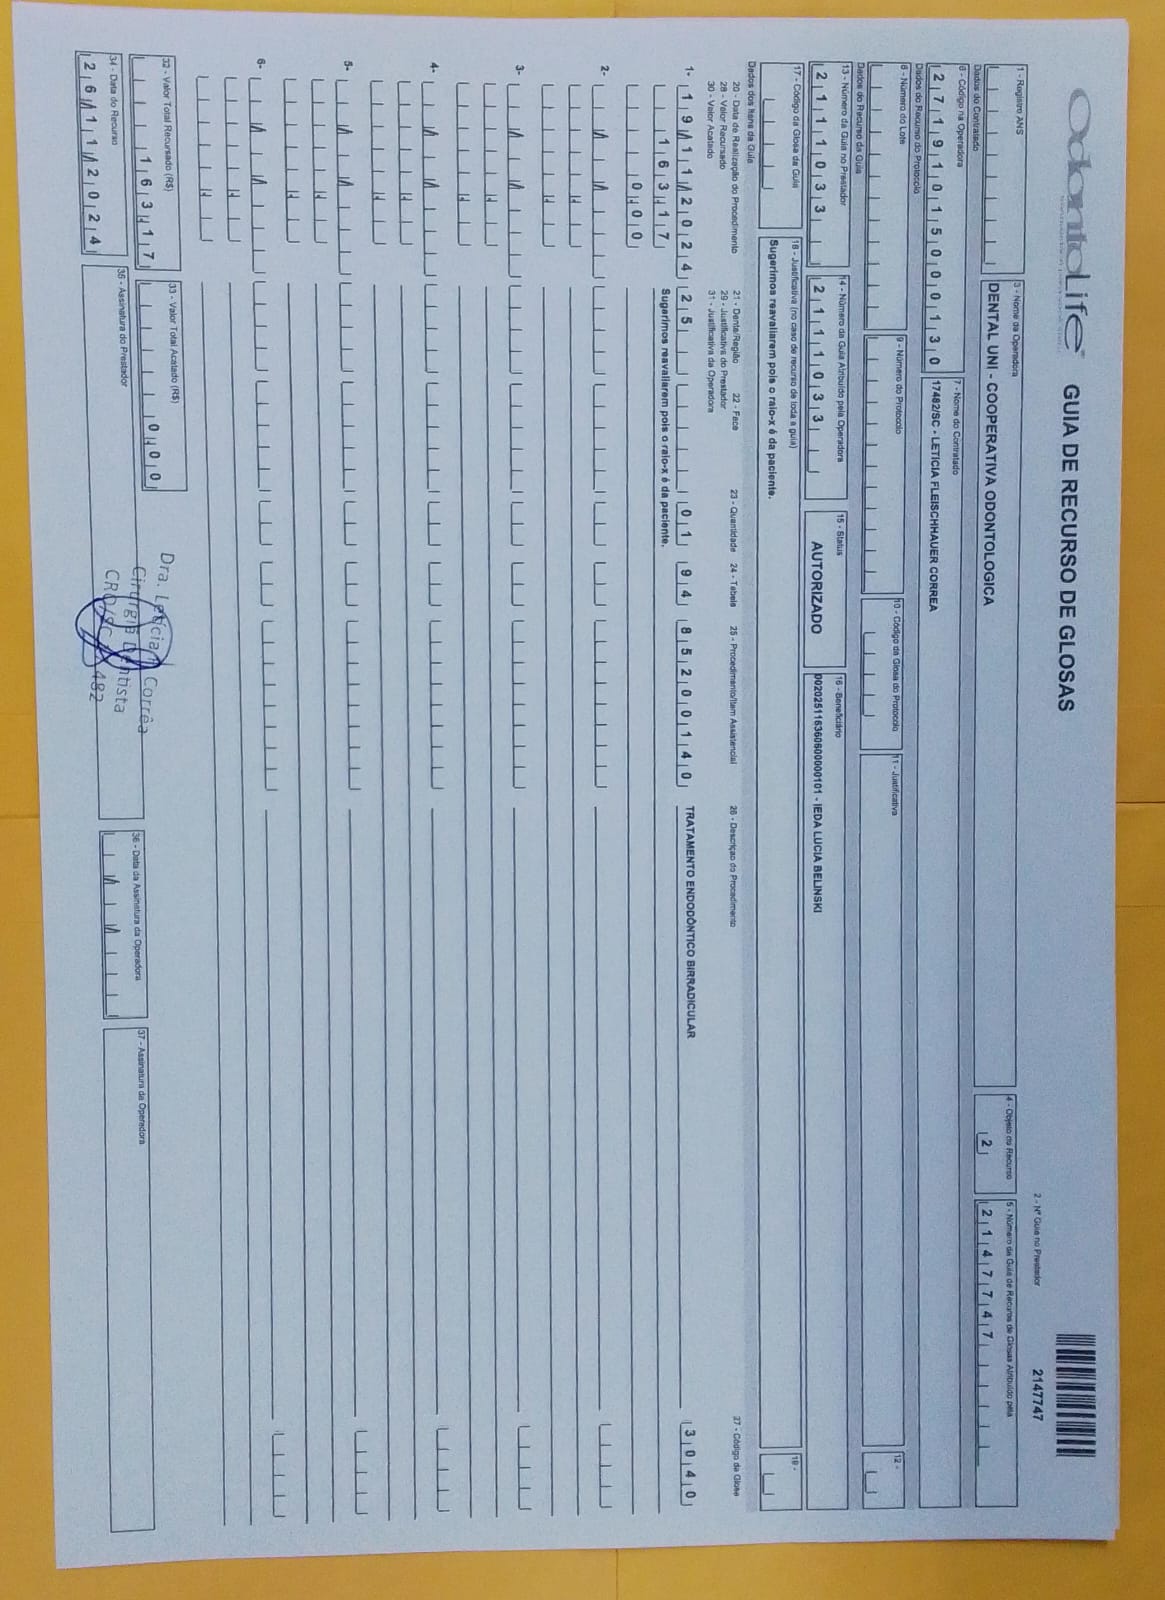 OdontoLife®
GUIA DE RECURSO DE GLOSAS
2 - Nº Guia no Prestador
2147747
1 - Registro ANS
3 - Nome da Operadora
DENTAL UNI - COOPERATIVA ODONTOLOGICA
4 - Objeto do Recurso
2
5 - Número da Guia de Recurso de Glosas Atribuído pela
2147747
Dados do Contratado
6 - Código na Operadora
27191015000130
7 - Nome do Contratado
17482/SC - LETICIA FLEISCHHAUER CORREA
Dados do Recurso do Protocolo
8 - Número do Lote
9 - Número do Protocolo
10 - Código da Glosa do Protocolo
11 - Justificativa
12 -
Dados do Recurso da Guia
13 - Número da Guia no Prestador
2111033
14 - Número da Guia Atribuído pela Operadora
2111033
15 - Status
AUTORIZADO
16 - Beneficiário
00202511636060000101 - IEDA LUCIA BELINSKI
17 - Código da Glosa da Guia
18 - Justificativa (no caso de recurso de toda a guia)
Sugerimos reavaliarem pois o raio-x é da paciente.
19 -
Dados dos Itens da Guia
20 - Data de Realização do Procedimento 21 - Dente/Região 22 - Face 23 - Quantidade 24 - Tabela 25 - Procedimento/Item Assistencial 26 - Descrição do Procedimento 27 - Código da Glosa
28 - Valor Recursado 29 - Justificativa do Prestador
30 - Valor Acatado 31 - Justificativa da Operadora
1- 19/11/2024 25 01 94 85200140 TRATAMENTO ENDODÔNTICO BIRRADICULAR 3040
163,17 Sugerimos reavaliarem pois o raio-x é da paciente.
0,00
2-
3-
4-
5-
6-
32 - Valor Total Recursado (R$)
163,17
33 - Valor Total Acatado (R$)
0,00
34 - Data do Recurso
26/11/2024
35 - Assinatura do Prestador
Dra. Letícia Corrêa
Cirurgiã Dentista
CRO/SC 17482
36 - Data da Assinatura da Operadora
37 - Assinatura da Operadora